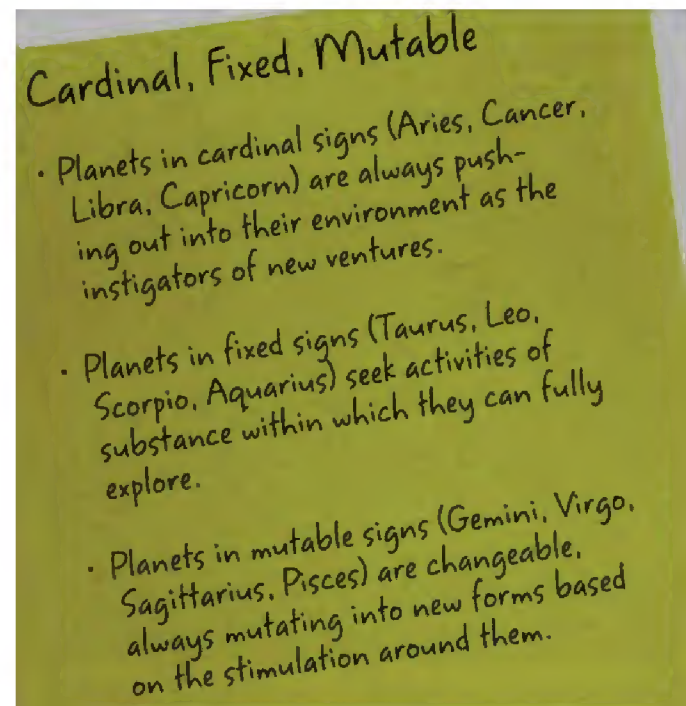 Cardinal, Fixed, Mutable
· Planets in cardinal signs (Aries, Cancer,
Libra, Capricorn) are always push-
ing out into their environment as the
instigators of new ventures.
· Planets in fixed signs (Taurus, Leo,
Scorpio, Aquarius) seek activities of
substance within which they can fully
explore.
· Planets in mutable signs (Gemini, Virgo,
Sagittarius, Pisces) are changeable,
always mutating into new forms based
on the stimulation around them.